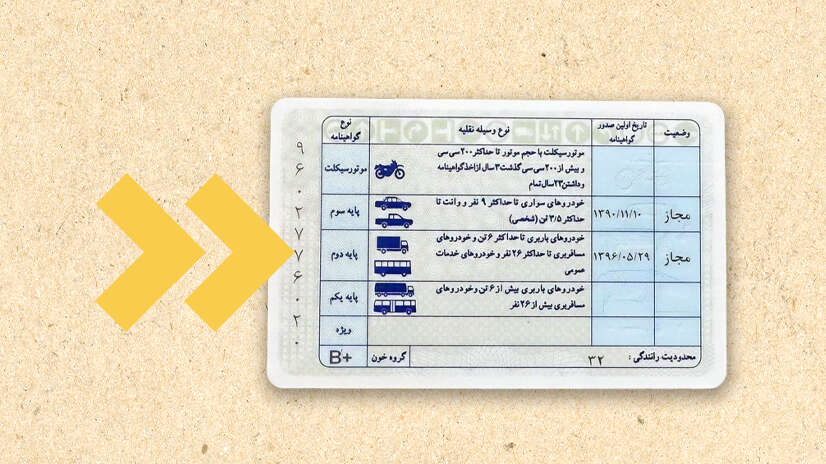 نوع گواهینامه	نوع وسیله نقلیه	تاریخ اولین صدور گواهینامه	وضعیت
موتورسیکلت	موتورسیکلت با حجم موتور تا حداکثر ۲۰۰ سی سی
و بیش از ۲۰۰ سی سی گذشت ۳ سال از اخذ گواهینامه
و داشتن ۲۳ سال تمام
پایه سوم	خودروهای سواری تا حداکثر ۹ نفر و وانت تا
حداکثر ۳/۵ تن (شخصی)	۱۳۹۰/۱۱/۱۰	مجاز
پایه دوم	خودروهای باربری تا حداکثر ۶ تن و خودروهای
مسافربری تا حداکثر ۲۶ نفر و خودروهای خدمات
عمومی	۱۳۹۶/۰۵/۲۹	مجاز
پایه یکم	خودروهای باربری بیش از ۶ تن و خودروهای
مسافربری بیش از ۲۶ نفر
ویژه
محدودیت رانندگی : ۳۲	گروه خون	B+
۹
۶
۰
۲
۷
۷
۶
۰
۲
۰